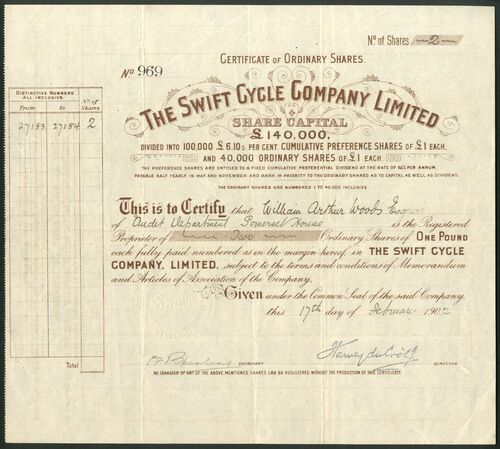 No of Shares 2
CERTIFICATE OF ORDINARY SHARES.
No 969
THE SWIFT CYCLE COMPANY LIMITED
SHARE CAPITAL
£140,000,
DIVIDED INTO 100,000 £6.10s. PER CENT. CUMULATIVE PREFERENCE SHARES OF £1 EACH,
AND 40,000 ORDINARY SHARES OF £1 EACH
THE PREFERENCE SHARES ARE ENTITLED TO A FIXED CUMULATIVE PREFERENTIAL DIVIDEND AT THE RATE OF 6½% PER ANNUM,
PAYABLE HALF YEARLY IN MAY AND NOVEMBER AND RANK IN PRIORITY TO THE ORDINARY SHARES AS TO CAPITAL AS WELL AS DIVIDENDS.
THE ORDINARY SHARES ARE NUMBERED 1 TO 40,000 INCLUSIVE
DISTINCTIVE NUMBERS ALL INCLUSIVE. No of Shares
From to
27183 27184 2
Total
This is to Certify that William Arthur Woods Esquire
of Audit Department Somerset House is the Registered
Proprietor of Two Ordinary Shares of ONE POUND
each fully paid numbered as in the margin hereof in THE SWIFT CYCLE
COMPANY, LIMITED, subject to the terms and conditions of Memorandum
and Articles of Association of the Company.
Given under the Common Seal of the said Company,
this 17th day of February 1902
SECRETARY
Harvey du Cros Jr DIRECTOR
NO TRANSFER OF ANY OF THE ABOVE MENTIONED SHARES CAN BE REGISTERED WITHOUT THE PRODUCTION OF THIS CERTIFICATE